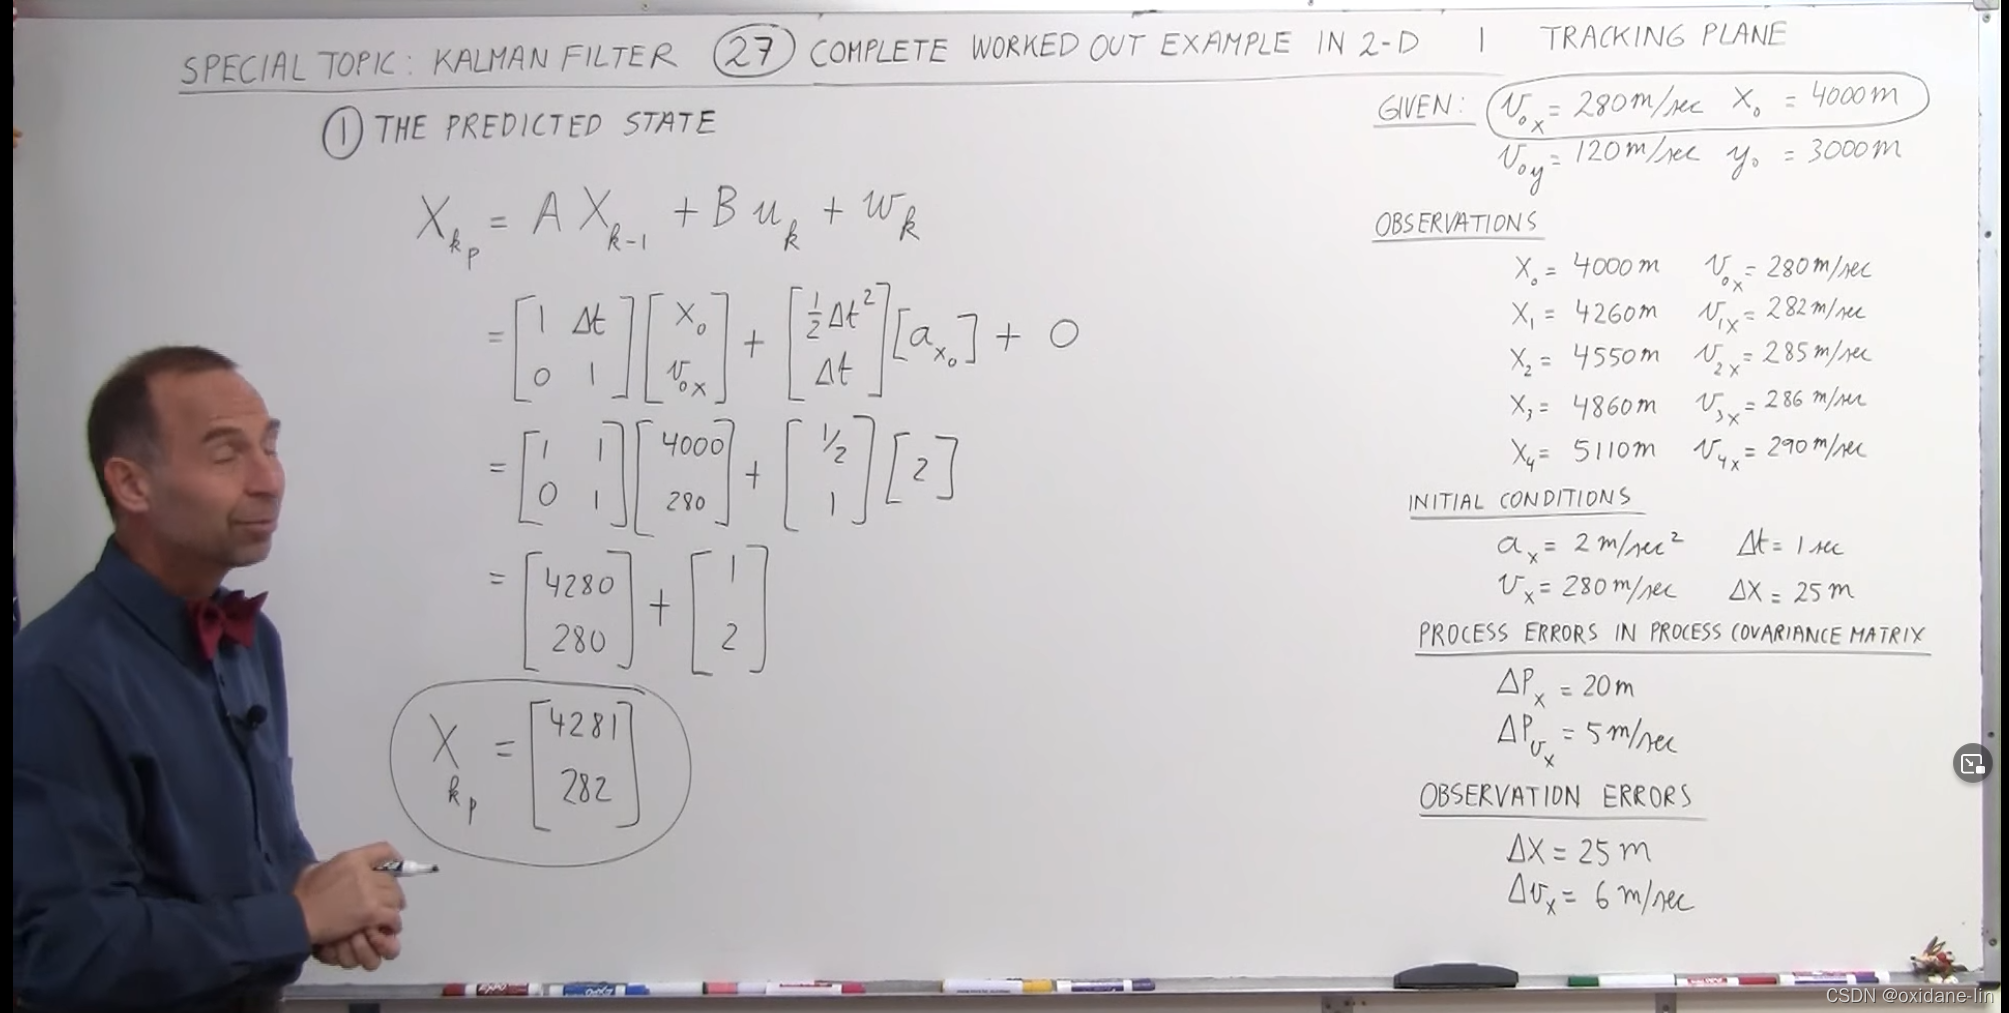 SPECIAL TOPIC: KALMAN FILTER (27) COMPLETE WORKED OUT EXAMPLE IN 2-D | TRACKING PLANE
① THE PREDICTED STATE
X_{k_p} = A X_{k-1} + B u_k + w_k
= [1 Δt; 0 1] [X_0; v_{0x}] + [1/2 Δt²; Δt] [a_{x_0}] + 0
= [1 1; 0 1] [4000; 280] + [1/2; 1] [2]
= [4280; 280] + [1; 2]
X_{k_p} = [4281; 282]
GIVEN: v_{0x} = 280 m/sec X_0 = 4000 m
v_{0y} = 120 m/sec y_0 = 3000 m
OBSERVATIONS
X_0 = 4000 m v_{0x} = 280 m/sec
X_1 = 4260 m v_{1x} = 282 m/sec
X_2 = 4550 m v_{2x} = 285 m/sec
X_3 = 4860 m v_{3x} = 286 m/sec
X_4 = 5110 m v_{4x} = 290 m/sec
INITIAL CONDITIONS
a_x = 2 m/sec² Δt = 1 sec
v_x = 280 m/sec ΔX = 25 m
PROCESS ERRORS IN PROCESS COVARIANCE MATRIX
ΔP_x = 20 m
ΔP_{v_x} = 5 m/sec
OBSERVATION ERRORS
ΔX = 25 m
Δv_x = 6 m/sec
EXPO
EXPO
CSDN @oxidane-lin